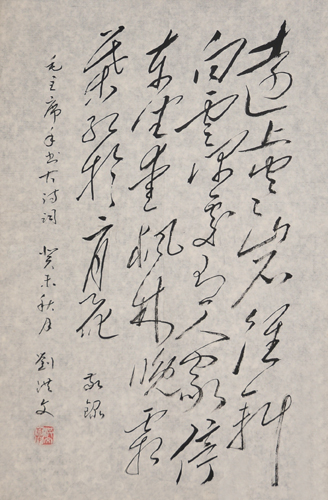 遠上寒山石徑斜
白雲深處有人家停
車坐愛楓林晚霜
葉紅於二月花 敬錄
毛主席手書古詩詞 癸未秋月 劉洪文